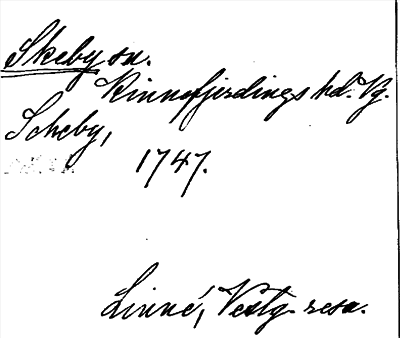 Skeby sn.
Kinnefjerdings hd. Vg.
Scheby,
1747.
Linné, Vestg. resa.